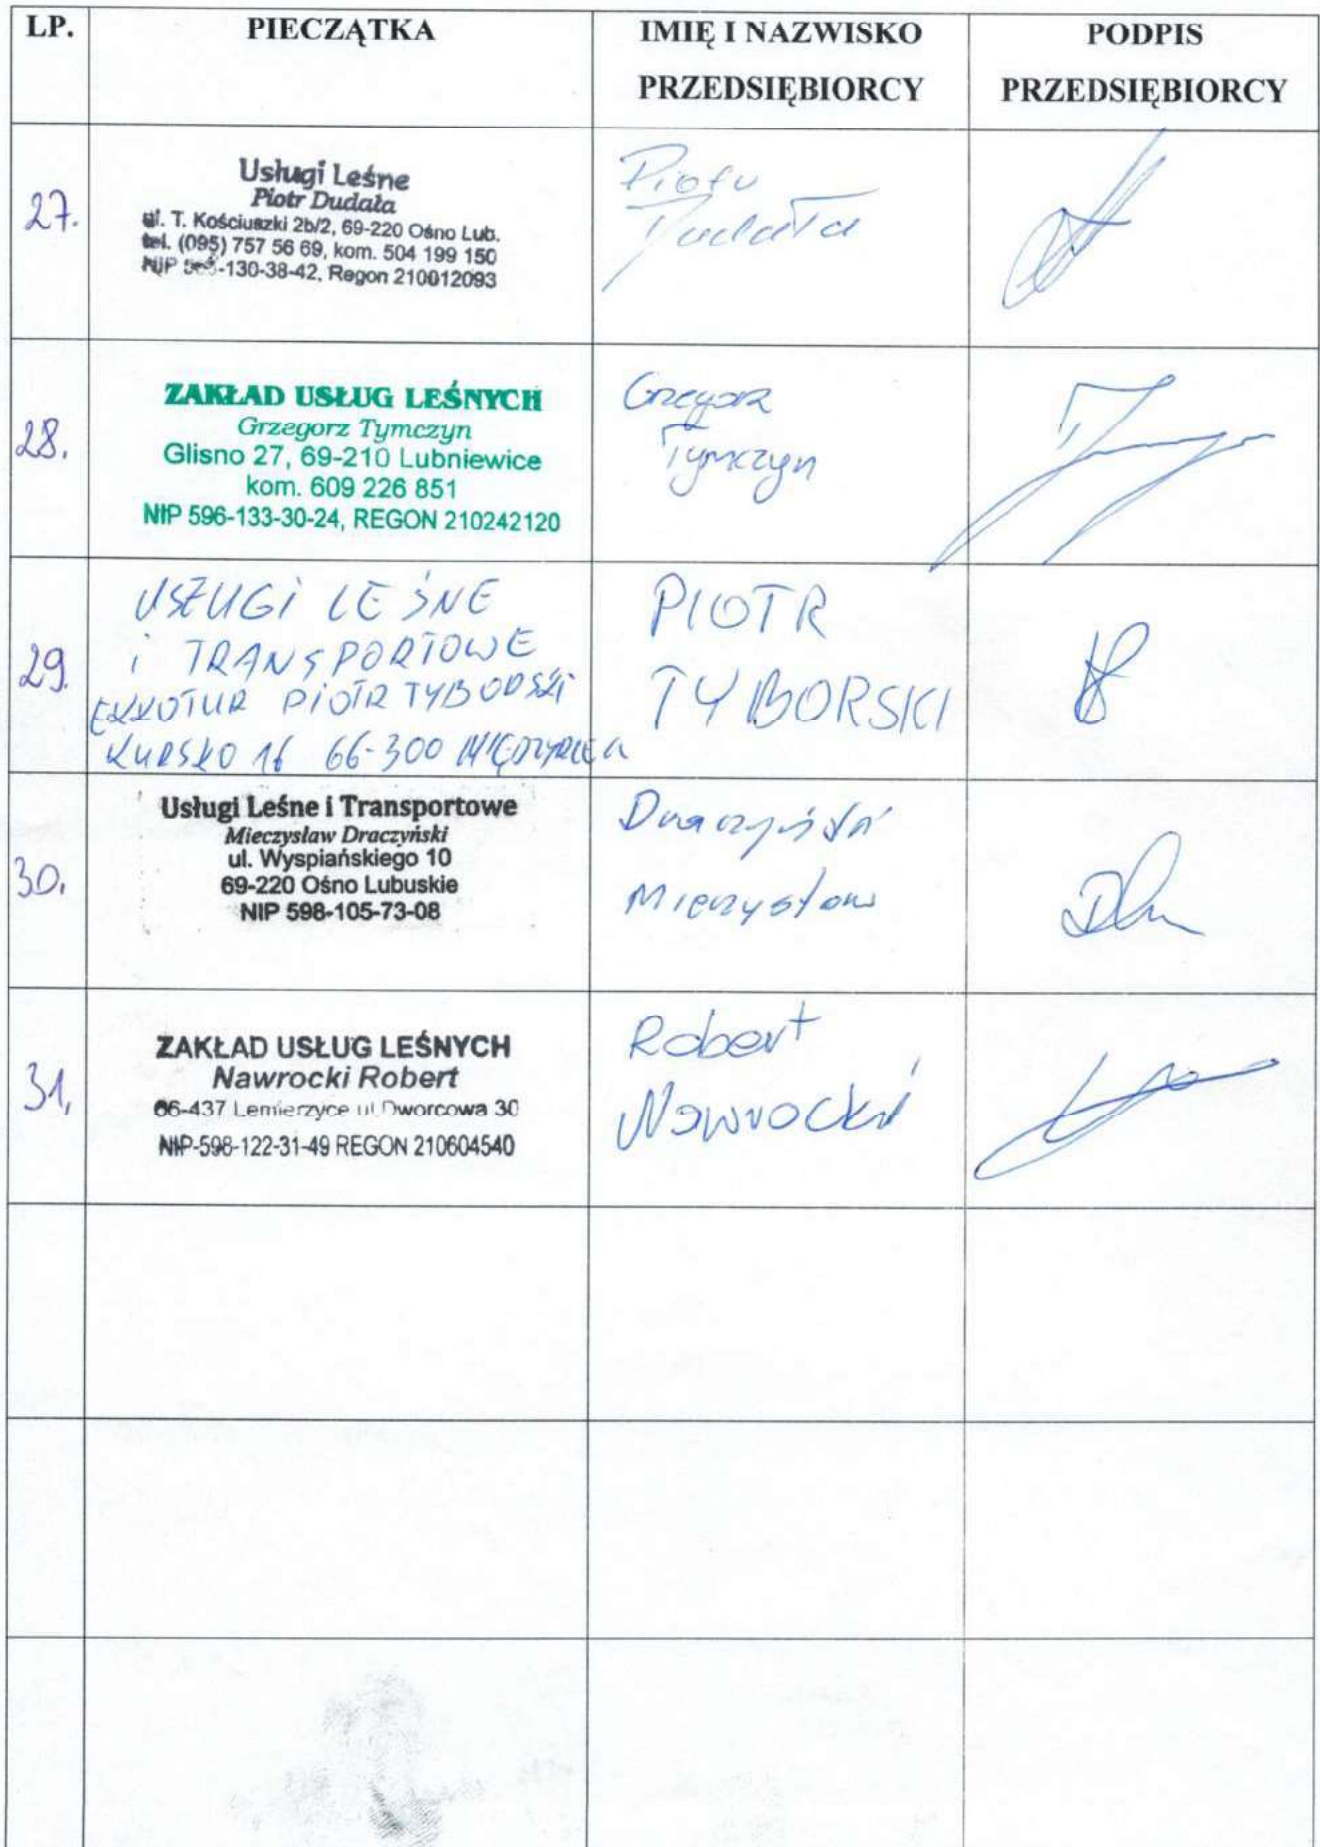 LP. PIECZĄTKA IMIĘ I NAZWISKO PRZEDSIĘBIORCY PODPIS PRZEDSIĘBIORCY
27.
Usługi Leśne
Piotr Dudała
ul. T. Kościuszki 2b/2, 69-220 Ośno Lub.
tel. (095) 757 56 69, kom. 504 199 150
NIP -130-38-42, Regon 210012093
Piotr
Dudała
28.
ZAKŁAD USŁUG LEŚNYCH
Grzegorz Tymczyn
Glisno 27, 69-210 Lubniewice
kom. 609 226 851
NIP 596-133-30-24, REGON 210242120
Grzegorz
Tymczyn
29.
USŁUGI LEŚNE
i TRANSPORTOWE
PIOTR TYBORSKI
KURSKO 16 66-300
PIOTR
TYBORSKI
30.
Usługi Leśne i Transportowe
Mieczysław Draczyński
ul. Wyspiańskiego 10
69-220 Ośno Lubuskie
NIP 598-105-73-08
Draczyński
Mieczysław
31.
ZAKŁAD USŁUG LEŚNYCH
Nawrocki Robert
66-437 Lemierzyce ul.Dworcowa 30
NIP-598-122-31-49 REGON 210604540
Robert
Nawrocki